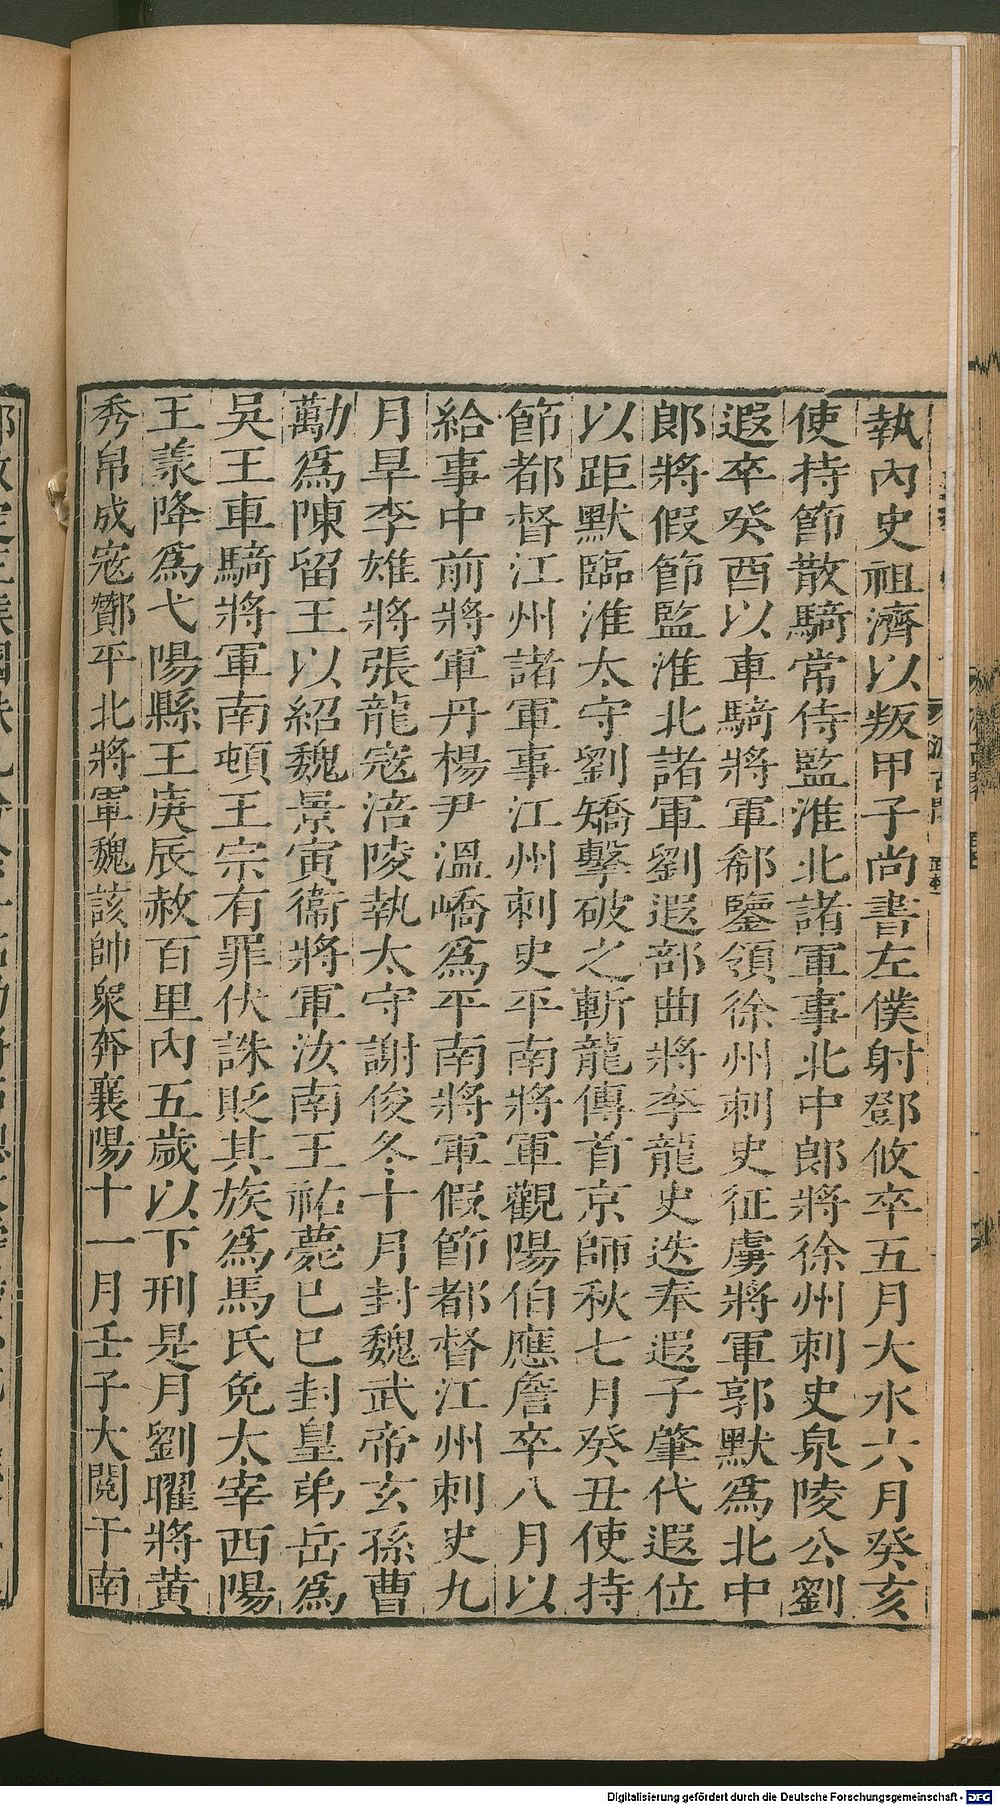 執內史祖濟以叛甲子尚書左僕射鄧攸卒五月大水六月癸亥
使持節散騎常侍監淮北諸軍事北中郎將徐州刺史泉陵公劉
遐卒癸酉以車騎將軍郗鑒領徐州刺史征虜將軍郭默爲北中
郎將假節監淮北諸軍劉遐部曲將李龍史迭奉遐子肇代遐位
以距默臨淮太守劉矯擊破之斬龍傳首京師秋七月癸丑使持
節都督江州諸軍事江州刺史平南將軍觀陽伯應詹卒八月以
給事中前將軍丹楊尹溫嶠爲平南將軍假節都督江州刺史九
月旱李雄將張龍寇涪陵執太守謝俊冬十月封魏武帝玄孫曹
勱爲陳留王以紹魏景寅衞將軍汝南王祐薨巳巳封皇弟岳爲
吳王車騎將軍南頓王宗有罪伏誅貶其族爲馬氏免太宰西陽
王羕降爲弋陽縣王庚辰赦百里內五歲以下刑是月劉曜將黃
秀帛成寇酇平北將軍魏該帥衆奔襄陽十一月壬子大閱于南
Digitalisierung gefördert durch die Deutsche Forschungsgemeinschaft - DFG